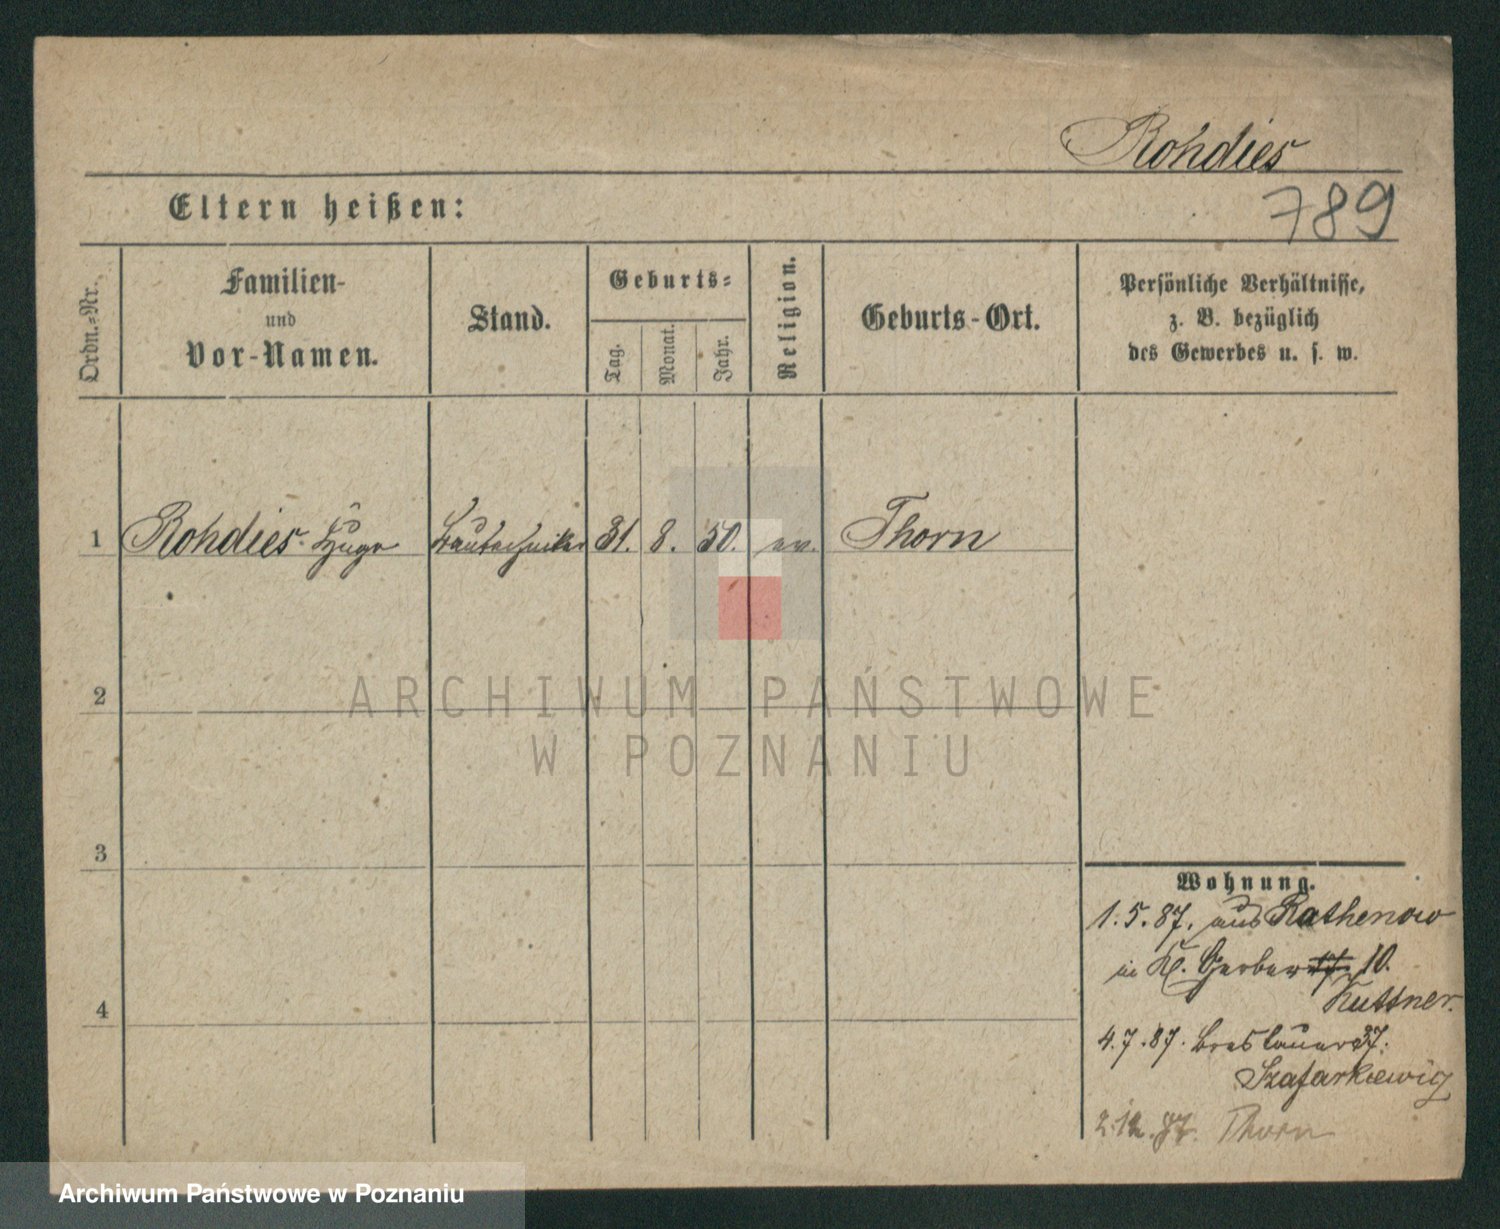 Rohdies
789
Eltern heißen:
Ordn.-Nr.
Familien-
und
Vor-Namen.
Stand.
Geburts-
Tag.
Monat.
Jahr.
Religion.
Geburts-Ort.
Persönliche Verhältnisse,
z. B. bezüglich
des Gewerbes u. s. w.
1 Rohdies Hugo Bautechniker 31. 8. 50. ev. Thorn
2
3
4
Wohnung.
1.5.87. aus Rathenow
in Kl. Gerber 10.
Kuttner.
4.7.87. Breslauer 37.
Szafarkiewicz
2.12.87. Thorn
ARCHIWUM PAŃSTWOWE
W POZNANIU
Archiwum Państwowe w Poznaniu